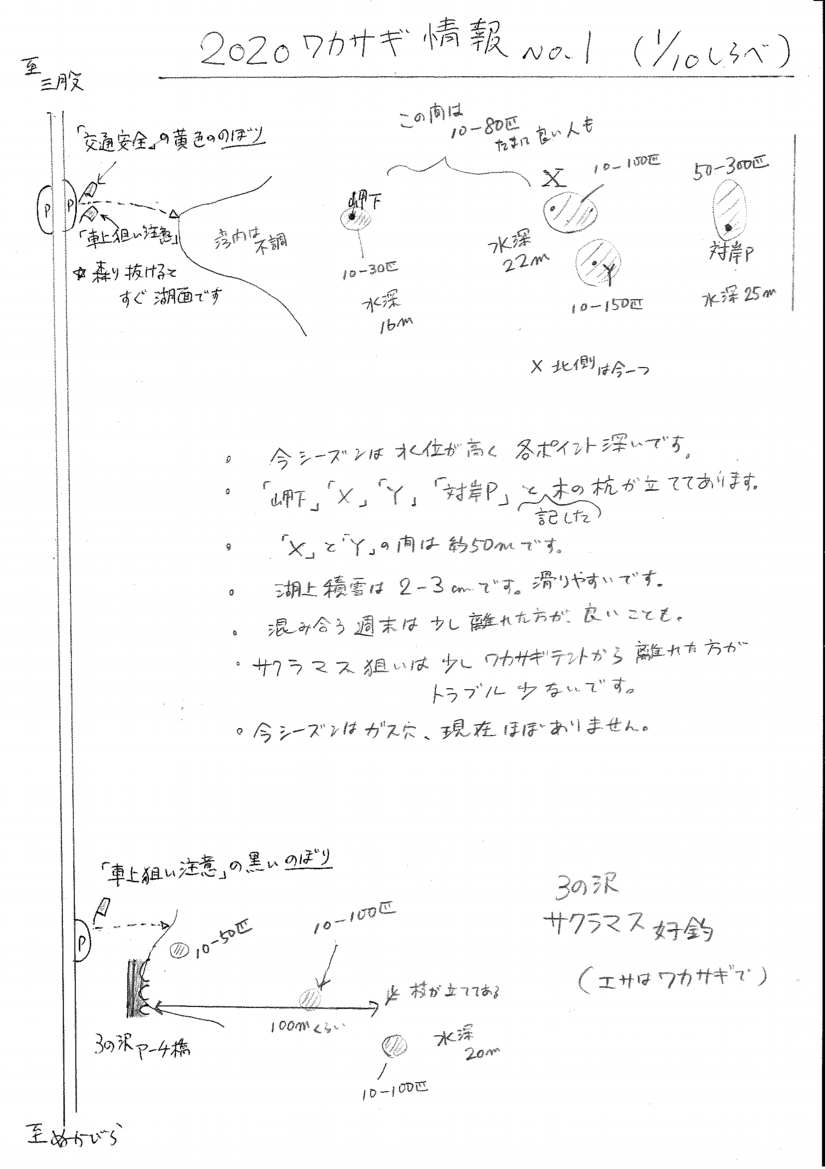 2020 ワカサギ 情報 No.1 (1/10しらべ)
至
三股
「交通安全」の黄色ののぼり
P P
「車上狙い注意」
☆森り抜けると
すぐ湖面です
湾内は
不調
この間は
10-80匹
たまに良い人も
岬下
10-30匹
水深
16m
X
10-100匹
水深
22m
Y
10-150匹
50-300匹
対岸P
水深25m
X 北側は今一つ
。今シーズンは水位が高く 各ポイント深いです。
。「岬下」「X」「Y」「対岸P」と 木の杭が立ててあります。
記した
。「X」と「Y」の間は約50mです。
。湖上積雪は2-3cmです。滑りやすいです。
。混み合う週末は少し離れた方が、良いことも。
・サクラマス狙いは少しワカサギテントから離れた方が
トラブル少ないです。
。今シーズンはガス穴、現在ほぼありません。
「車上狙い注意」の黒いのぼり
P
10-50匹
10-100匹
枝が立ててある
100mくらい
3の沢アーチ橋
水深
20m
10-100匹
3の沢
サクラマス好釣
(エサはワカサギで)
至ぬかびら